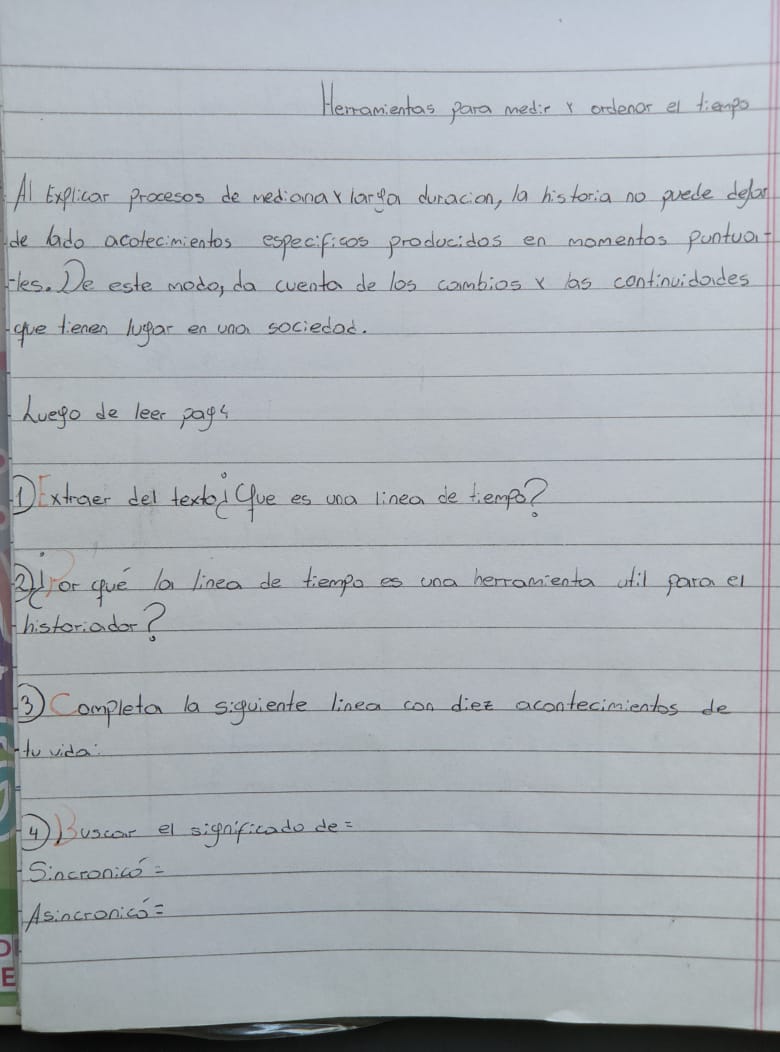 Herramientas para medir y ordenar el tiempo
Al Explicar procesos de mediana y larga duracion, la historia no puede dejar
de lado acotecimientos especificos producidos en momentos puntua-
-les. De este modo, da cuenta de los cambios y las continuidades
que tienen lugar en una sociedad.
Luego de leer pag 4
1) Extraer del texto ¿Que es una linea de tiempo?
2) ¿Por qué la linea de tiempo es una herramienta util para el
historiador?
3) Completa la siguiente linea con diez acontecimientos de
tu vida:
4) Buscar el significado de=
Sincronicó=
Asincronicó=
E